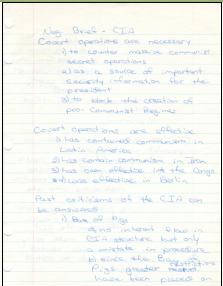 Neg Brief - CIA
Covert operations are necessary
1) to counter massive communist
secret operations
2) as a source of important
security information for the
president
3) to block the creation of
pro-Communist Regimes
Covert operations are effective
1) has contained communism in
Latin America
2) has contain communism in Iran
3) has been effective into the Congo
4) was effective in Berlin
Past criticisms of the CIA can
be answered
1) Bay of Pigs
a) no inherent flaw in
CIA structure but only
a mistake in procedure
b) since the Bay of
Pigs greater restrictions
have been placed on